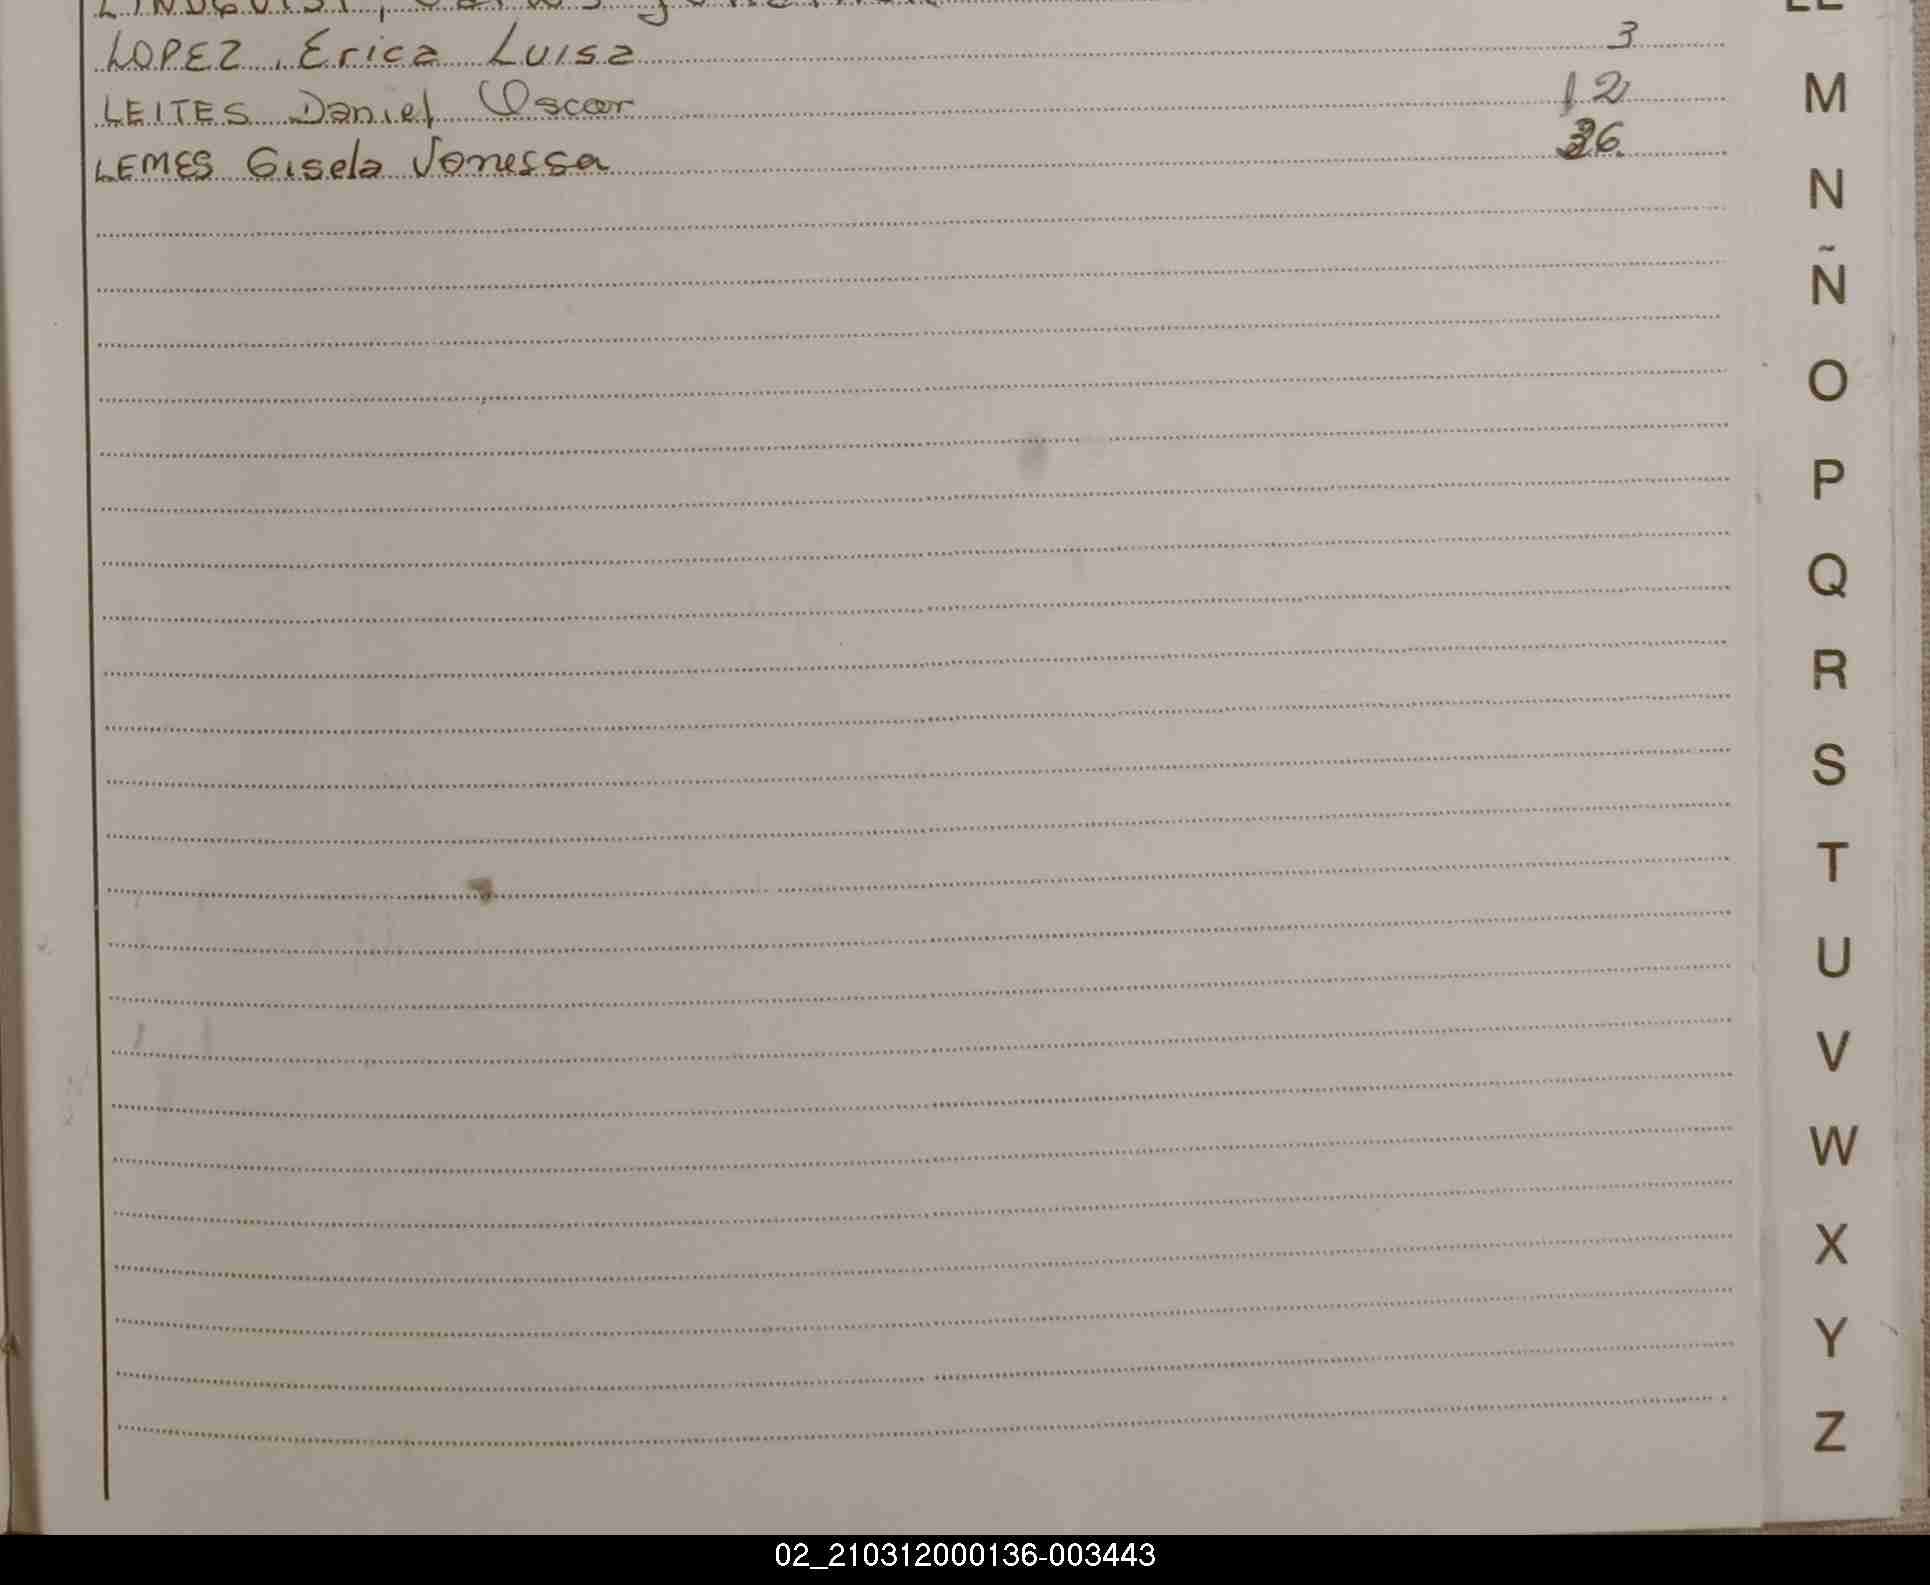 LINDQUIST, Carlos
LOPEZ, Erica Luisa 3
LEITES Daniel Oscar 12
LEMES Gisela Vanessa 36
M
N
Ñ
O
P
Q
R
S
T
U
V
W
X
Y
Z
02_210312000136-003443